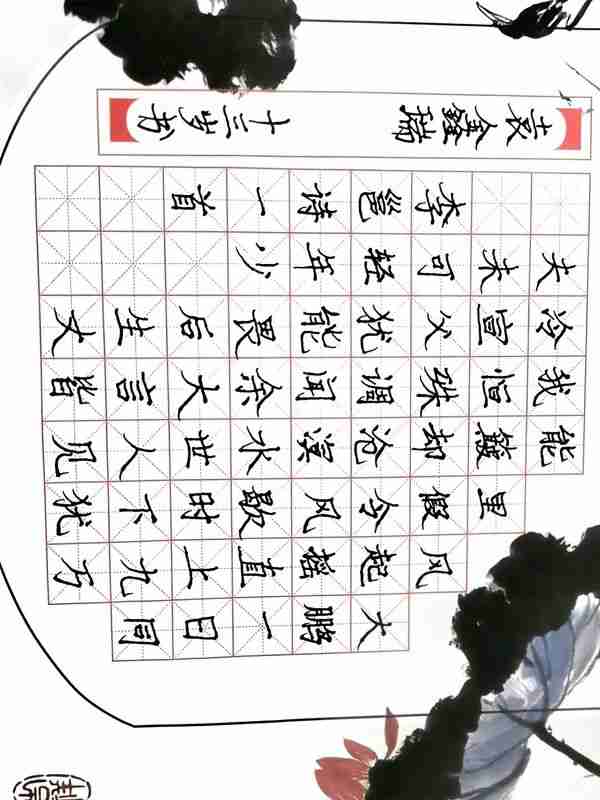 大鹏一日同
风起摇直上九万
里假令风歇时下犹
能簸却沧溟水世人见
我恒殊调闻余大言皆
冷宣父犹能畏后生丈
夫未可轻年少
李邕诗一首
袁鑫瑞 十三岁书